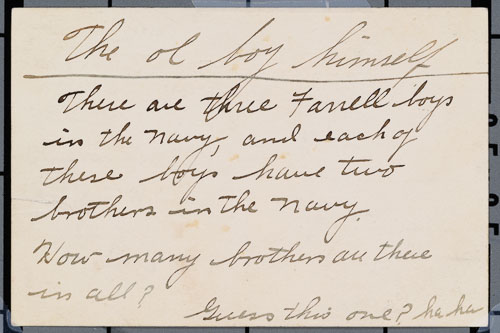 The ol boy himself
There are three Farrell boys
in the navy, and each of
these boys have two
brothers in the navy.
How many brothers are there
in all?
Guess this one? ha ha